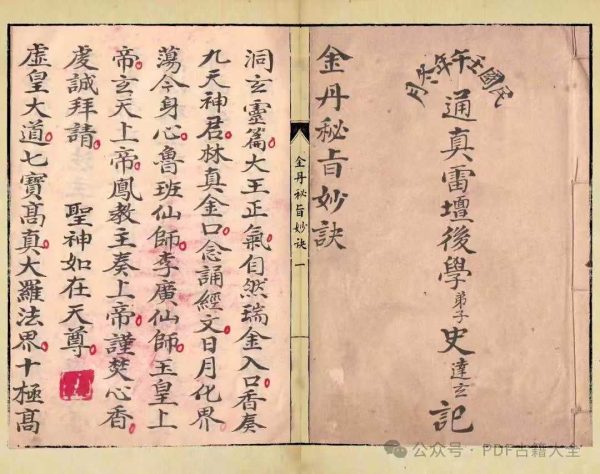 民國壬午年六月
通真雷壇後學弟子史達玄記
金丹秘旨妙訣
金丹秘旨妙訣 一
洞玄靈篇大王正氣自然瑞金入口香奏
九天神君林真金口念誦經文日月化界
蕩今身心魯班仙師李廣仙師玉皇上
帝玄天上帝鳳教主奏上帝謹焚心香
虔誠拜請 聖神如在天尊
虛皇大道七寶髙真大羅法界十極髙
公众号·PDF古籍大全